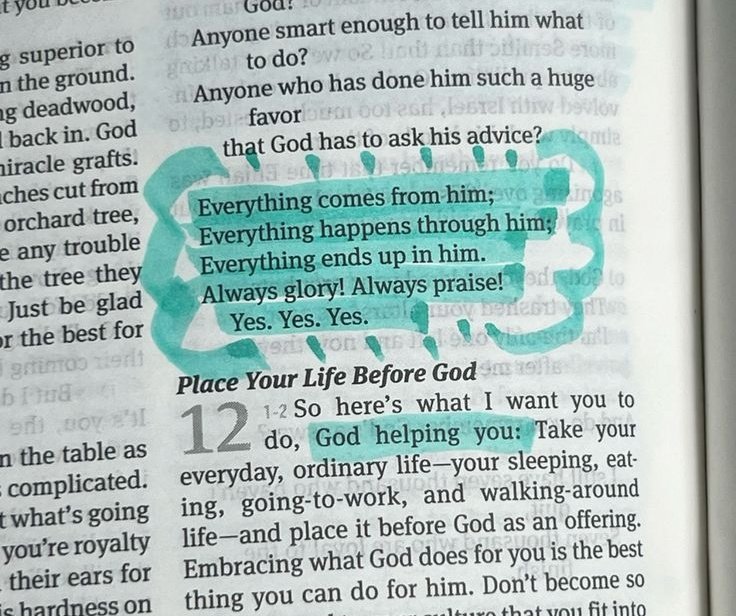 t you
g superior to
n the ground.
ng deadwood,
back in. God
miracle grafts.
ches cut from
orchard tree,
e any trouble
the tree they
Just be glad
or the best for
n the table as
complicated.
t what's going
you're royalty
their ears for
is hardness on
God?
Anyone smart enough to tell him what
to do?
Anyone who has done him such a huge
favor
that God has to ask his advice?
Everything comes from him;
Everything happens through him;
Everything ends up in him.
Always glory! Always praise!
Yes. Yes. Yes.
Place Your Life Before God
12 1-2 So here's what I want you to
do, God helping you: Take your
everyday, ordinary life—your sleeping, eat-
ing, going-to-work, and walking-around
life—and place it before God as an offering.
Embracing what God does for you is the best
thing you can do for him. Don't become so
that you fit into